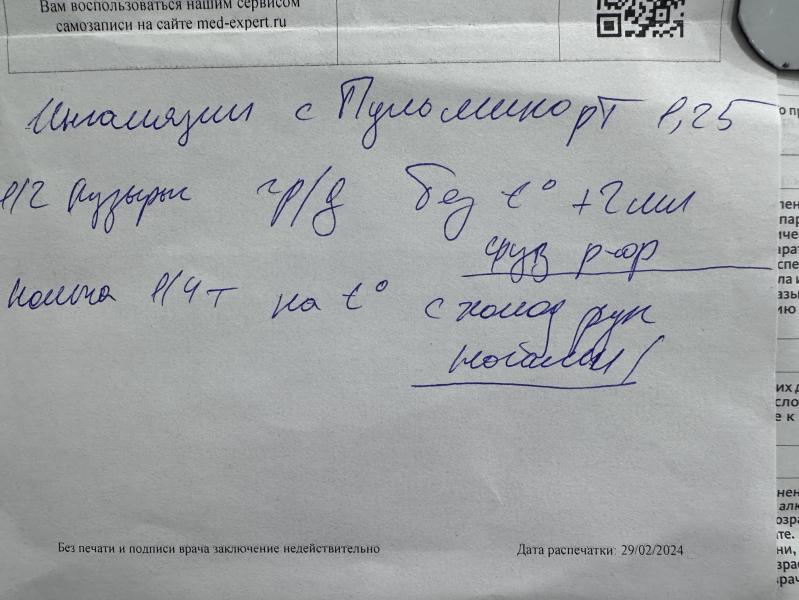 Вам воспользоваться нашим сервисом
самозаписи на сайте med-expert.ru
Ингаляции с Пульмикорт
1/2 пузырьк 2р/д без t° + 2 мл
физ р-ор
1/4 т на t° с холод рук
ногами!
Без печати и подписи врача заключение недействительно
Дата распечатки: 29/02/2024